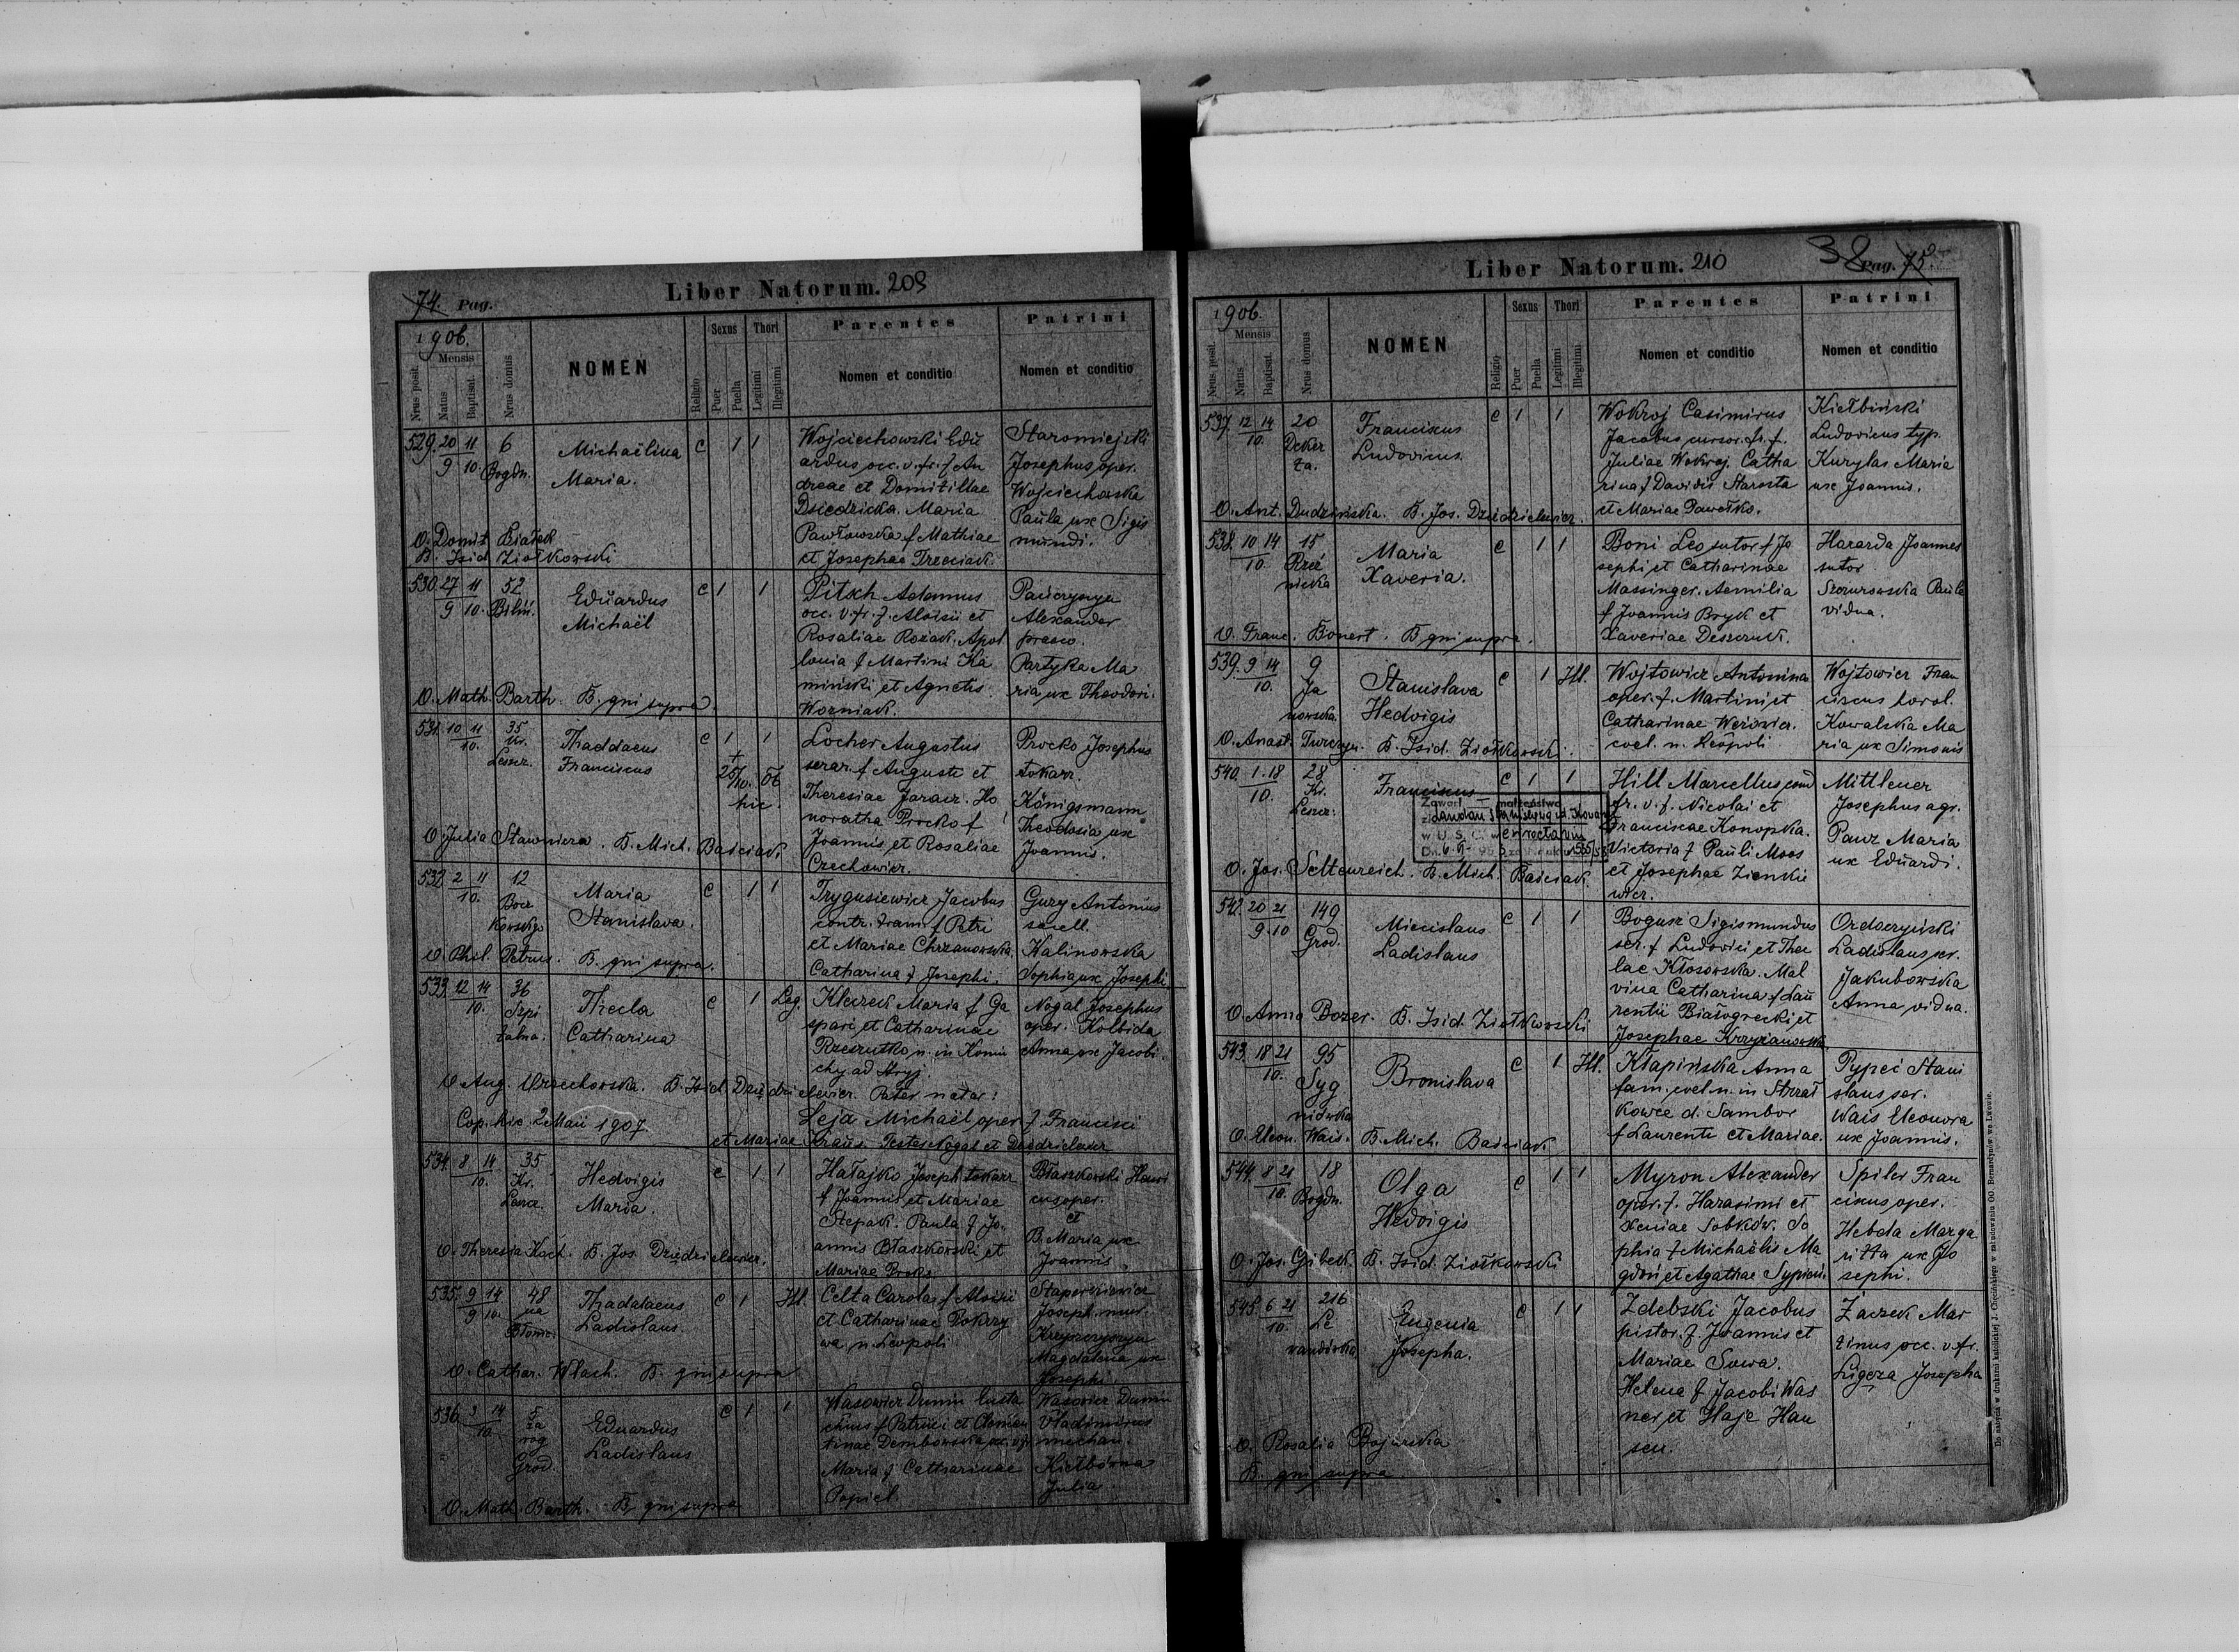 74. Pag.
Liber Natorum. 209
1906.
Mensis
Nrus posit.
Natus
Baptisat.
Nrus domus
NOMEN
Religio
Sexus
Puer
Puella
Thori
Legitimi
Illegitimi
Parentes
Nomen et conditio
Patrini
Nomen et conditio
529. 20/9 11/10. 6 Bogdn.
Michaëlina
Maria.
c 1 1
Wojciechowski Edu
ardus occ. v. fr. f. An
dreae et Domitillae
Dziedzicka. Maria
Pawłowska f Mathiae
et Josephae Trzeciak.
Staromiejski
Josephus oper.
Wojciechowska
Paula ux Sigis
mundi.
O. Domit. Białek
B. Isid. Ziołkowski
530. 27/9 11/10. 52 Biliń.
Eduardus
Michaël
c 1 1
Pitsch Adamus
occ. v. fr. f. Aloisii et
Rosaliae Rozak. Apol
lonia f Martini Ka
miński et Agnetis
Wozniak.
Alexander
Partyka Ma
ria ux Theodori.
O. Math. Barth. B. qui supra.
531. 10 11/10. 35 Kr. Leszcz.
Thaddaeus
Franciscus
c 1 1
+ 25/10. 06 hic.
Locher Augustus
serar. f Augusti et
Theresiae Jaracz. Ho
noratha Procko f
Joannis et Rosaliae
Czechowicz.
Procko Josephus
tokarz.
Königsmann
Theodosia ux
Joannis.
O. Julia Stawnicza. B. Mich. Baściak.
532. 2 11/10. 12 Bocz
kowskigo
Maria
Stanislava.
c 1 1
Trygusiewicz Jacobus
contr. tram. f Petri
et Mariae Chrzanowska.
Catharina f Josephi.
Gury Antonius
Kalinowska
Sophia ux Josephi
O. Phil. Petrus. B. qui supra.
533. 12 14/10. 36 Szpi
talna.
Thecla
Catharina
c 1 Leg.
Kleczek Maria f Ga
spari et Catharinae
Rzeszutko n. in Koniu
chy ad Stryj.
Nogal Josephus
oper. Kolbida
Anna ux Jacobi.
O. Aug. Orzechowska. B. Isid. Dziędzielewicz. Pater natar:
Cop. hic. 2 Maii 1907. Leja Michaël oper f. Francisci
et Mariae Kraus. Testes Nogal et Dziedzielewicz
534. 8 14/10. 35 Kr. Leszcz.
Hedvigis
Maria.
c 1 1
Hałajko Joseph tokarz
f Joannis et Mariae
Stepak. Paula f. Jo
annis Błaszkowski et
Mariae Proks
Błaszkowski Henri
cus oper.
et
B. Maria ux
Joannis.
O. Theresia Koch. B. Jos. Dziędzielewicz.
535. 9/9 14/10. 48 na Błonie.
Thaddaeus
Ladislaus.
c 1 Ill.
Celta Carola f Aloisii
et Catharinae Pokrzy
wa n. Leopoli
Joseph. mur.
Krzyszczyszyn
Magdalena ux
Josephi
O. Cathar. Wlach. B. qui supra
536. 3 14/10. 5 za rog Grod.
Eduardus
Ladislaus
c 1 1
Wasowicz Dunin Eusta
chius f Patricii et Clemen
tinae Dembowska
Maria f Catharinae
Popiel.
Wasowicz Dunin
Vladimirus
mechan.
Kiełbówna
Julia
O. Math. Barth. B. qui supra
Liber Natorum. 210
38 Pag. 75.
1906.
Mensis
Nrus posit.
Natus
Baptisat.
Nrus domus
NOMEN
Religio
Sexus
Puer
Puella
Thori
Legitimi
Illegitimi
Parentes
Nomen et conditio
Patrini
Nomen et conditio
537. 12 14/10. 20 Deker
ta.
Franciscus
Ludovicus.
c 1 1
Wokroj Casimirus
Jacobus cursor. fr. f.
Juliae Wokroj. Catha
rina f Davidis Starosta
et Mariae Pawełko.
Kiełbiński
Ludovicus typ.
Kurylas Maria
ux Joannis.
O. Ant. Dudzińska. B. Jos. Dziędzielewicz.
538. 10 14/10. 15 Rzeź
nicka
Maria
Xaveria.
c 1 1
Boni Leo sutor f Jo
sephi et Catharinae
Massinger. Aemilia
f Joannis Bryk et
Xaveriae Deszczuk.
Hazarda Joannes
sutor
Szczurowska Paula
vidua.
O. Franc. Bonert. B qui supra.
539. 9 14/10. 9 Ja
nowska.
Stanislava
Hedvigis
c 1 Ill.
Wojtowicz Antonina
oper. f. Martini et
Catharinae
coel. n. Leopoli
Wojtowicz Fran
ciscus horol.
Kowalska Ma
ria ux Simonis
O. Anast. Turczyn. B. Isid. Ziołkowski.
540. 1. 18/10. 28 Kr. Leszcz.
Franciscus
c 1 1
Zawarł małżeństwo
w U. S. C.
Hill Marcellus cond
fr. v. f. Nicolai et
Franciscae Konopka.
Victoria f Pauli Moos
et Josephae Zienkie
wicz.
Mittlener
Josephus agr.
Pauz Maria
ux Eduardi.
O. Jos. Seltenreich. B. Mich. Baściak.
542. 20/9 21/10 149 Grod.
Miecislaus
Ladislaus
c 1 1
Bogusz Sigismundus
ser. f Ludovici et Thec
lae Kłosowska. Mal
vina Catharina f Lau
rentii Białogrecki et
Josephae Krzyżanowska.
Ordoczyński
Ladislaus ser.
Jakubowska
Anna vidua.
O. Anna Bozer. B. Isid. Ziołkowski
543. 18 21/10. 95 Syg
niówka
Bronislava
c 1 Ill.
Kłapińska Anna
fam. coel. n. in Strzał
kowce d. Sambor
f Laurentii et Mariae.
Pypeć Stani
slaus ser.
Wais Eleonora
ux Joannis.
O. Eleon. Wais. B. Mich. Baściak
544. 8 21/10. 18 Bogdn.
Olga
Hedvigis
c 1 1
Myron Alexander
oper. f. Harasimi et
Xeniae Sobków. So
phia f Michaëlis Ma
gdoń et Agathae
Spiler Fran
ciscus oper.
Hebda Marga
ritta ux Jo
sephi.
O. Jos. Gibek. B. Isid. Ziołkowski
545. 6 21/10. 216 Le
wandówka
Eugenia
Josepha.
c 1 1
Zdebski Jacobus
pistor. f. Joannis et
Mariae Sowa.
Helena f Jacobi Was
ner et Haje Han
sen.
Żaczek Mar
tinus occ. v. fr.
Ługoza Josepha
O. Rosalia Bojarska
B. qui supra
Do nabycia w drukarni katolickiej J. Chęcińskiego w zabudowaniu OO. Bernardynów we Lwowie.